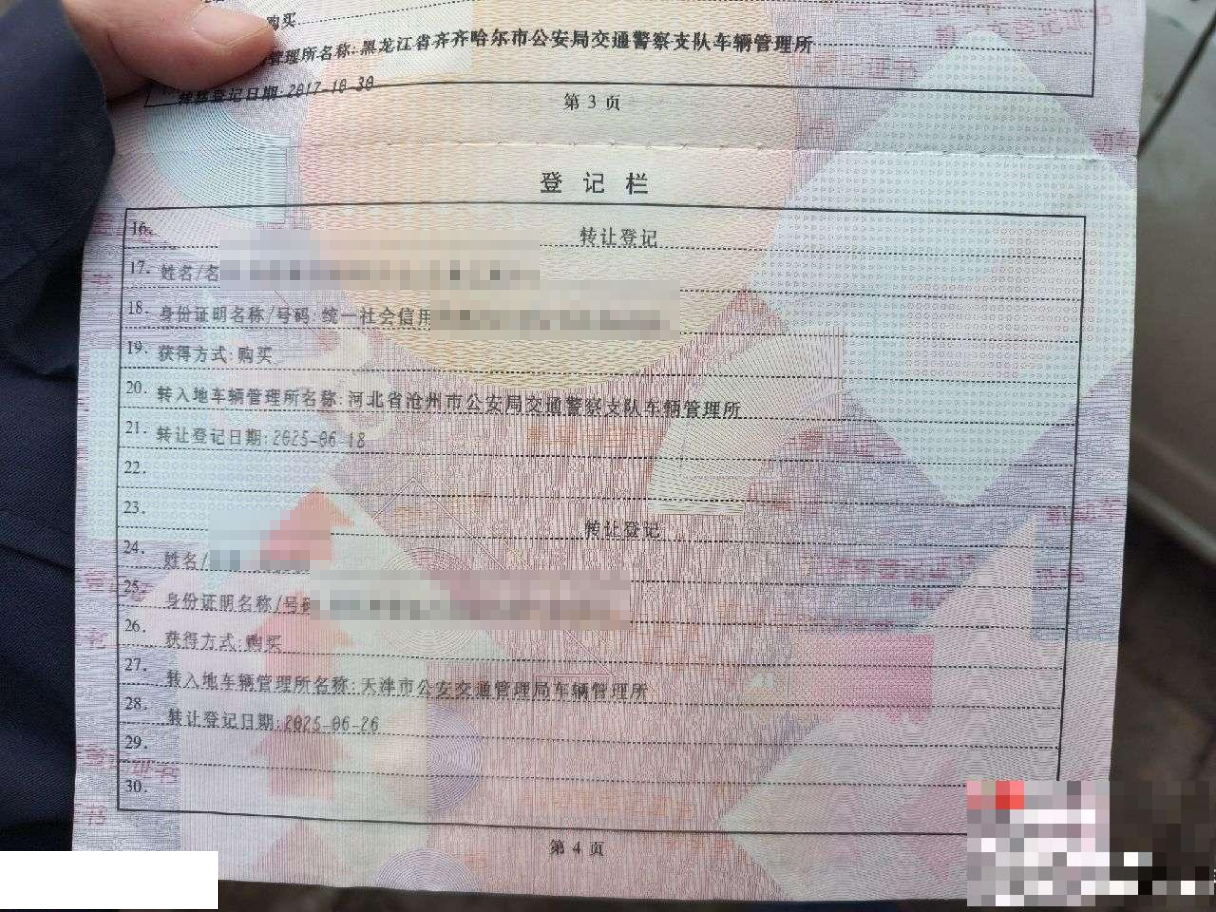 购买
管理所名称:黑龙江省齐齐哈尔市公安局交通警察支队车辆管理所
登记日期:2017-10-30
第 3 页
登 记 栏
16. 转让登记
17. 姓名/名
18. 身份证明名称/号码:统一社会信用
19. 获得方式:购买
20. 转入地车辆管理所名称:河北省沧州市公安局交通警察支队车辆管理所
21. 转让登记日期:2025-06-18
22.
23. 转让登记
24. 姓名/
25. 身份证明名称/号码
26. 获得方式:购买
27. 转入地车辆管理所名称:天津市公安交通管理局车辆管理所
28. 转让登记日期:2025-06-26
29.
30.
第 4 页